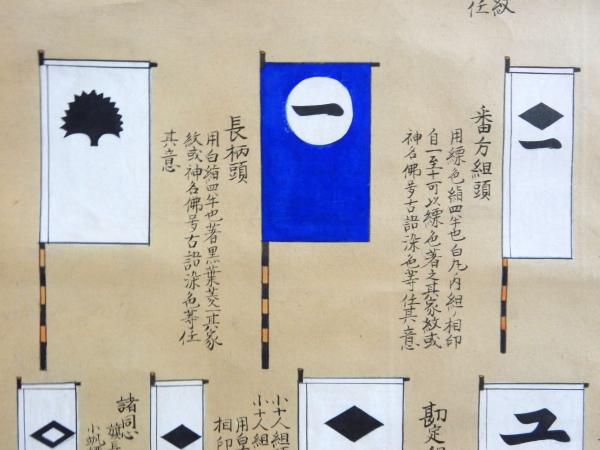 紋
任
番方組頭
用縹色絹四半也白丸ノ内組ノ相印
自一至十可以縹色著之其家紋或
神名佛号古語染色等任其意
一
長柄頭
用白絹四半也著黒葉菱一其家
紋或神名佛号古語染色等任
其意
一
ユ
勘定組
小十人組頭
小十人組
用白
相印
諸同心
旗長